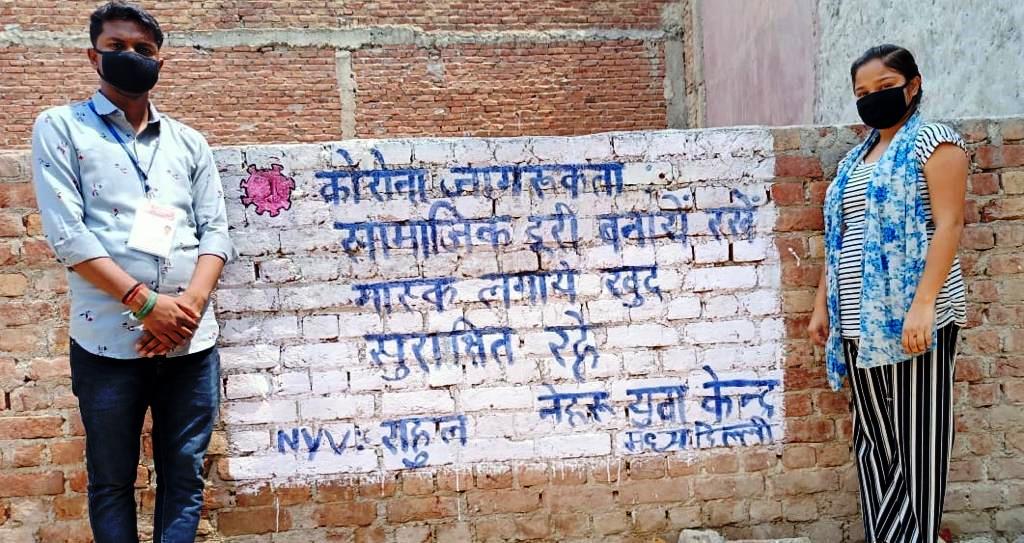 कोरोना जागरूकता
सामाजिक दूरी बनायें रखें
मास्क लगाये खुद
सुरक्षित रहे
नेहरू युवा केन्द्र
NYV: राहुल
मध्य दिल्ली